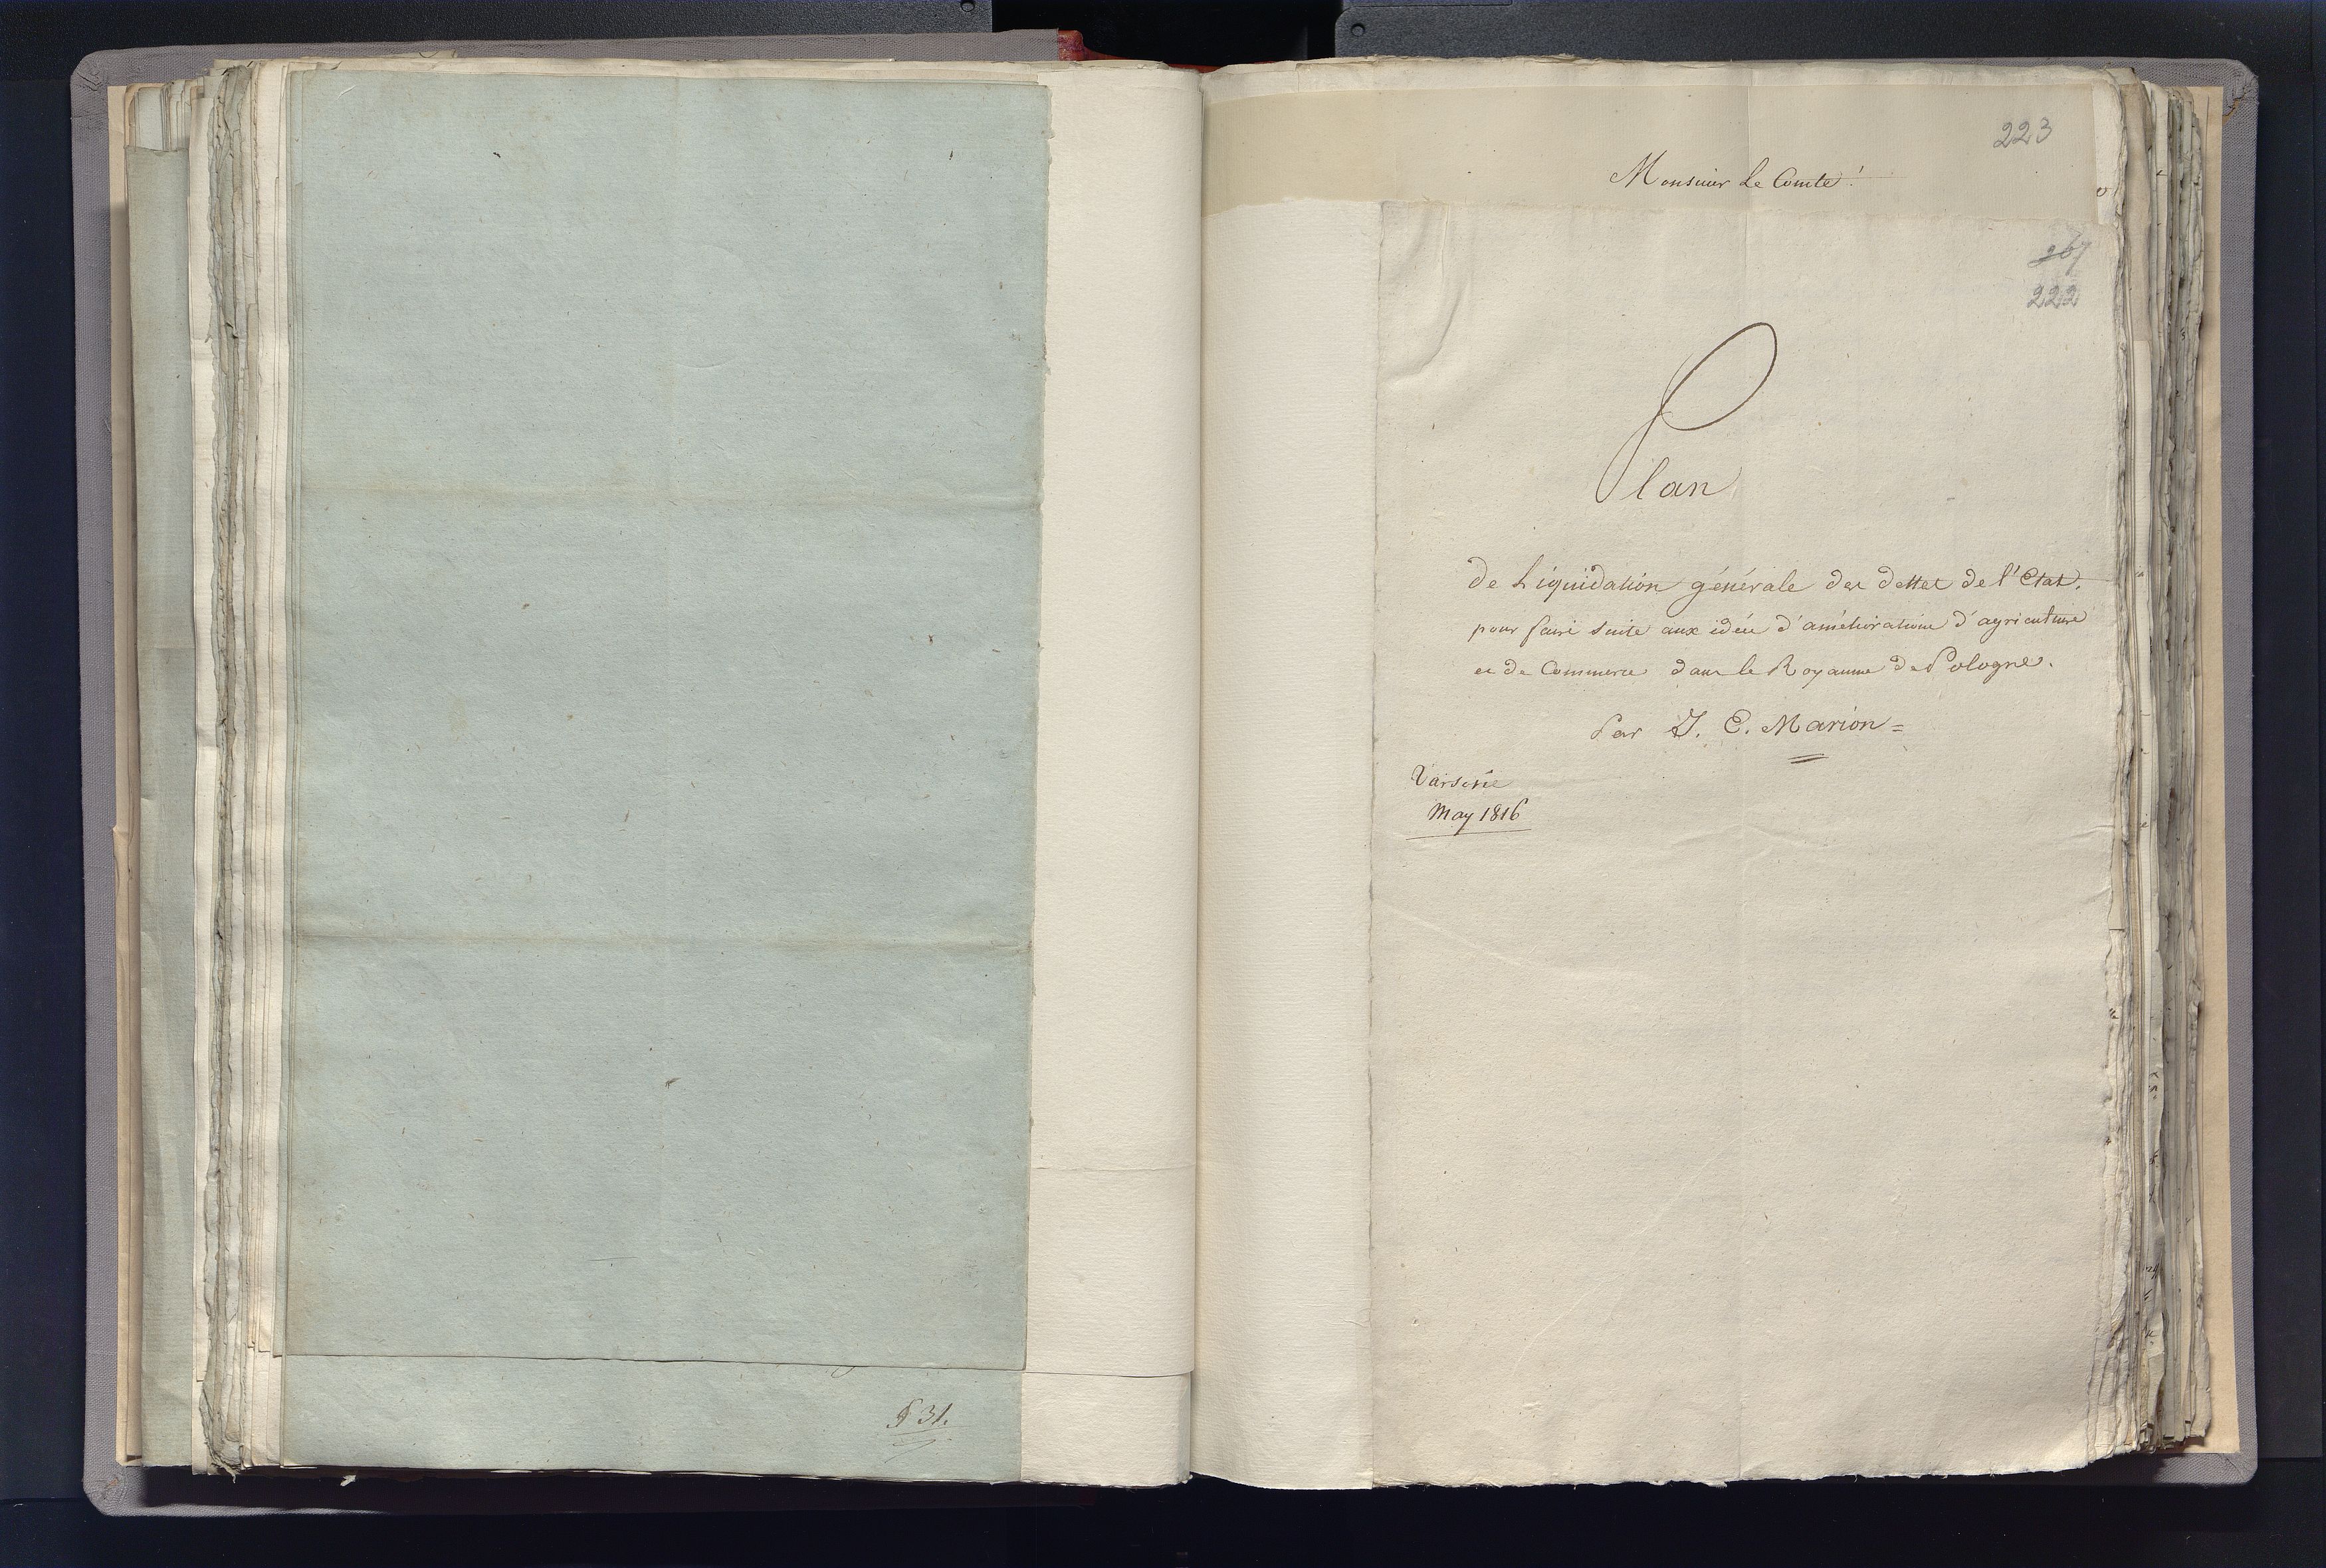 § 31.
223
Monsieur Le Comte!
267
222
Plan
de Liquidation générale des dettes de l'Etat,
pour faire suite aux idées d'améliorations d'agriculture
et de Commerce dans le Royaume de Pologne.
Par J. E. Marion =
Varsovie
May 1816